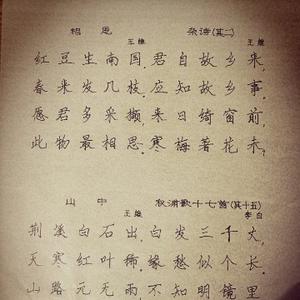 相思 杂诗(其二)
王维 王维
红豆生南国,君自故乡来,
春来发几枝.应知故乡事.
愿君多采撷,来日绮窗前,
此物最相思.寒梅著花未?
山中 秋浦歌十七首(其十五)
王维 李白
荆溪白石出,白发三千丈,
天寒红叶稀.缘愁似个长.
山路元无雨不知明镜里